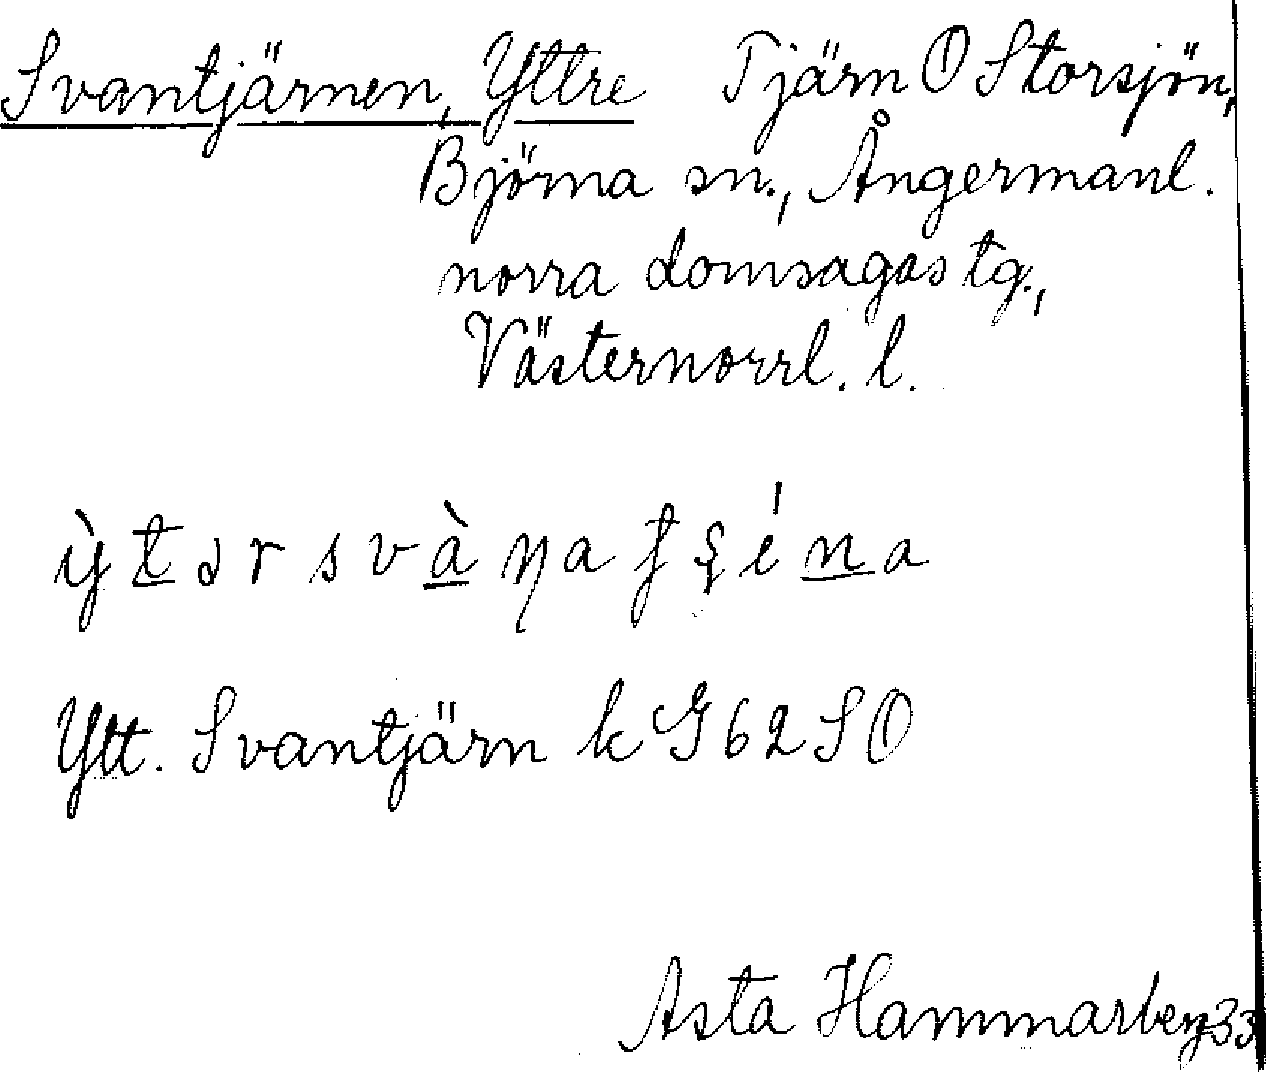 Svantjärnen, Yttre Tjärn O Storsjön,
Björna sn., Ångermanl.
norra domsagas tg.,
Västernorrl. l.
ỳtərsvàŋaʈʂéna
Ytt. Svantjärn k G62SO
Asta Hammarberg 33